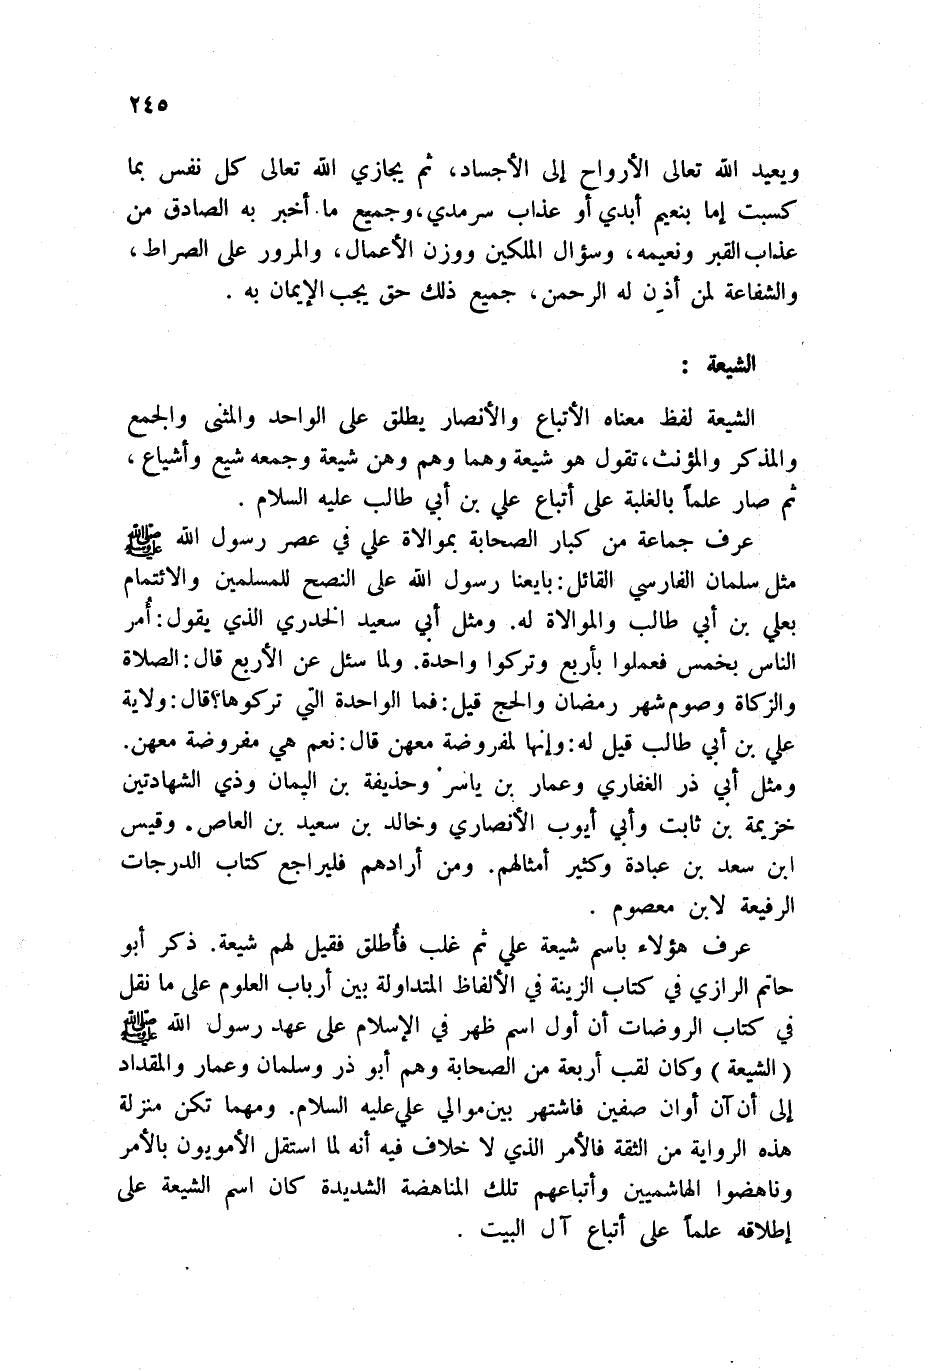 ٢٤٥
ويعيد الله تعالى الأرواح إلى الأجساد، ثم يجازي الله تعالى كل نفس بما
كسبت إما بنعيم أبدي أو عذاب سرمدي، وجميع ما أخبر به الصادق من
عذاب القبر ونعيمه، وسؤال الملكين ووزن الأعمال، والمرور على الصراط،
والشفاعة لمن أذن له الرحمن، جميع ذلك حق يجب الإيمان به .
الشيعة :
الشيعة لفظ معناه الأتباع والأنصار يطلق على الواحد والمثنى والجمع
والمذكر والمؤنث، تقول هو شيعة وهما وهم وهن شيعة وجمعه شيع وأشياع،
ثم صار علماً بالغلبة على أتباع علي بن أبي طالب عليه السلام .
عرف جماعة من كبار الصحابة بموالاة علي في عصر رسول الله ﷺ
مثل سلمان الفارسي القائل: بايعنا رسول الله على النصح للمسلمين والائتمام
بعلي بن أبي طالب والموالاة له. ومثل أبي سعيد الخدري الذي يقول: أُمر
الناس بخمس فعملوا بأربع وتركوا واحدة. ولما سئل عن الأربع قال: الصلاة
والزكاة وصوم شهر رمضان والحج قيل: فما الواحدة التي تركوها؟ قال: ولاية
علي بن أبي طالب قيل له: وإنها لمفروضة معهن قال: نعم هي مفروضة معهن.
ومثل أبي ذر الغفاري وعمار بن ياسر وحذيفة بن اليمان وذي الشهادتين
خزيمة بن ثابت وأبي أيوب الأنصاري وخالد بن سعيد بن العاص. وقيس
ابن سعد بن عبادة وكثير أمثالهم. ومن أرادهم فليراجع كتاب الدرجات
الرفيعة لابن معصوم .
عرف هؤلاء باسم شيعة علي ثم غلب فأُطلق فقيل لهم شيعة. ذكر أبو
حاتم الرازي في كتاب الزينة في الألفاظ المتداولة بين أرباب العلوم على ما نقل
في كتاب الروضات أن أول اسم ظهر في الإسلام على عهد رسول الله ﷺ
( الشيعة ) وكان لقب أربعة من الصحابة وهم أبو ذر وسلمان وعمار والمقداد
إلى أن آن أوان صفين فاشتهر بين موالي علي عليه السلام. ومهما تكن منزلة
هذه الرواية من الثقة فالأمر الذي لا خلاف فيه أنه لما استقل الأمويون بالأمر
وناهضوا الهاشميين وأتباعهم تلك المناهضة الشديدة كان اسم الشيعة على
إطلاقه علماً على أتباع آل البيت .